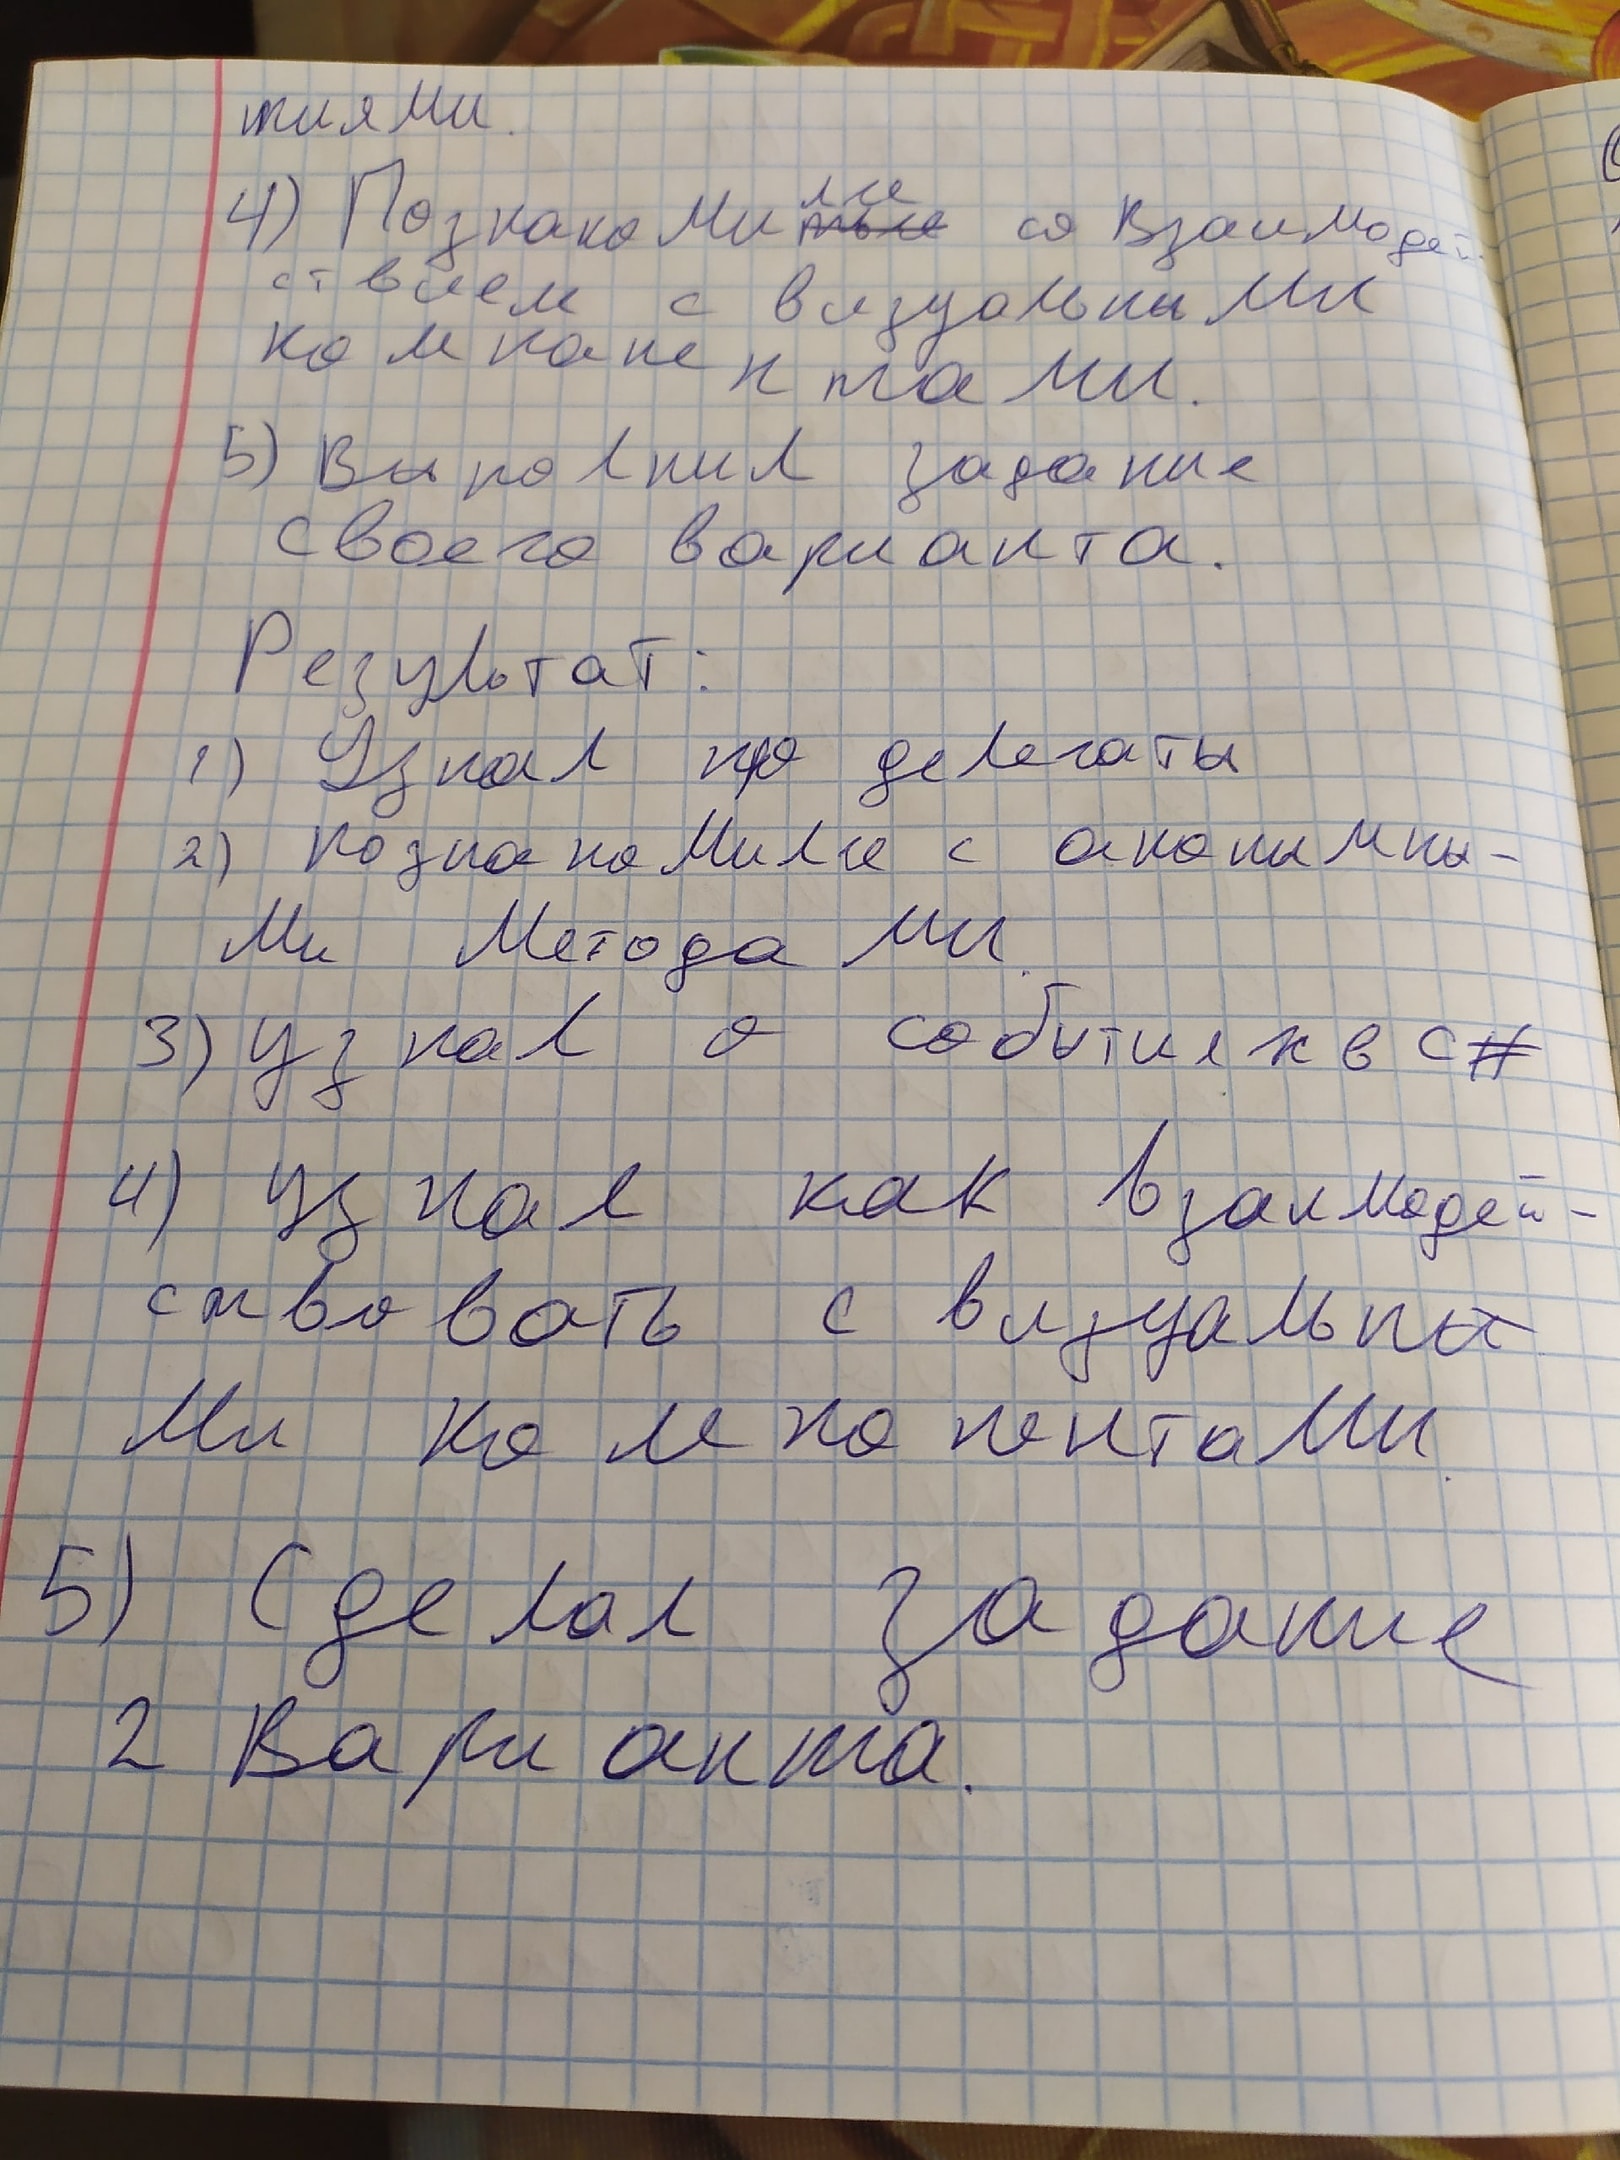 тиями.
4) Познакомился со взаимодей-
ствием с визуальными
компонентами.
5) Выполнил задание
своего варианта.
Результат:
1) Узнал про делегаты
2) познакомился с анонимны-
ми методами.
3) узнал о событиях в C#
4) узнал как взаимодей-
ствовать с визуальны
ми компонентами.
5) Сделал задание
2 Варианта.